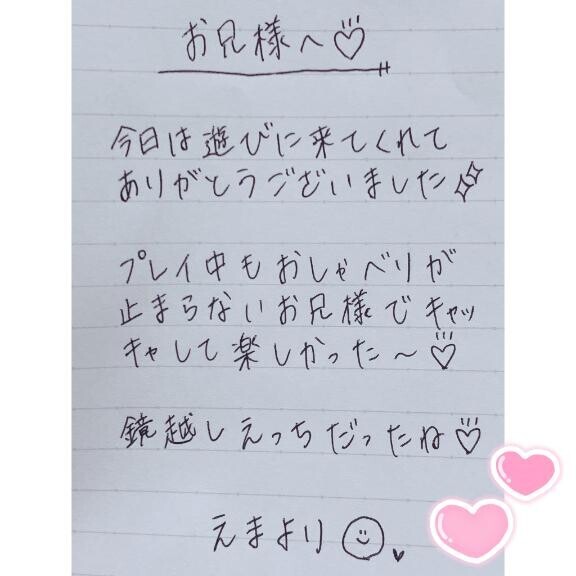 お兄様へ♡
今日は遊びに来てくれて
ありがとうございました
プレイ中もおしゃべりが
止まらないお兄様でキャッ
キャして楽しかった〜♡
鏡越しえっちだったね♡
えまより